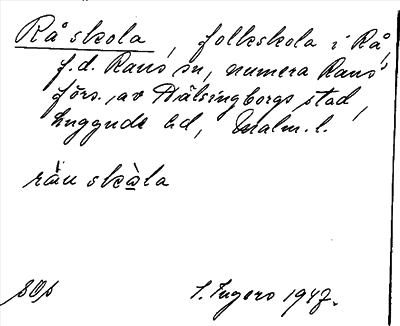 Rå skola, folkskola i Rå,
f.d. Raus sn, numera Raus
förs., av Hälsingborgs stad,
Luggude hd, Malm. l.
råu skola
SOs
S. Ingers 1947.